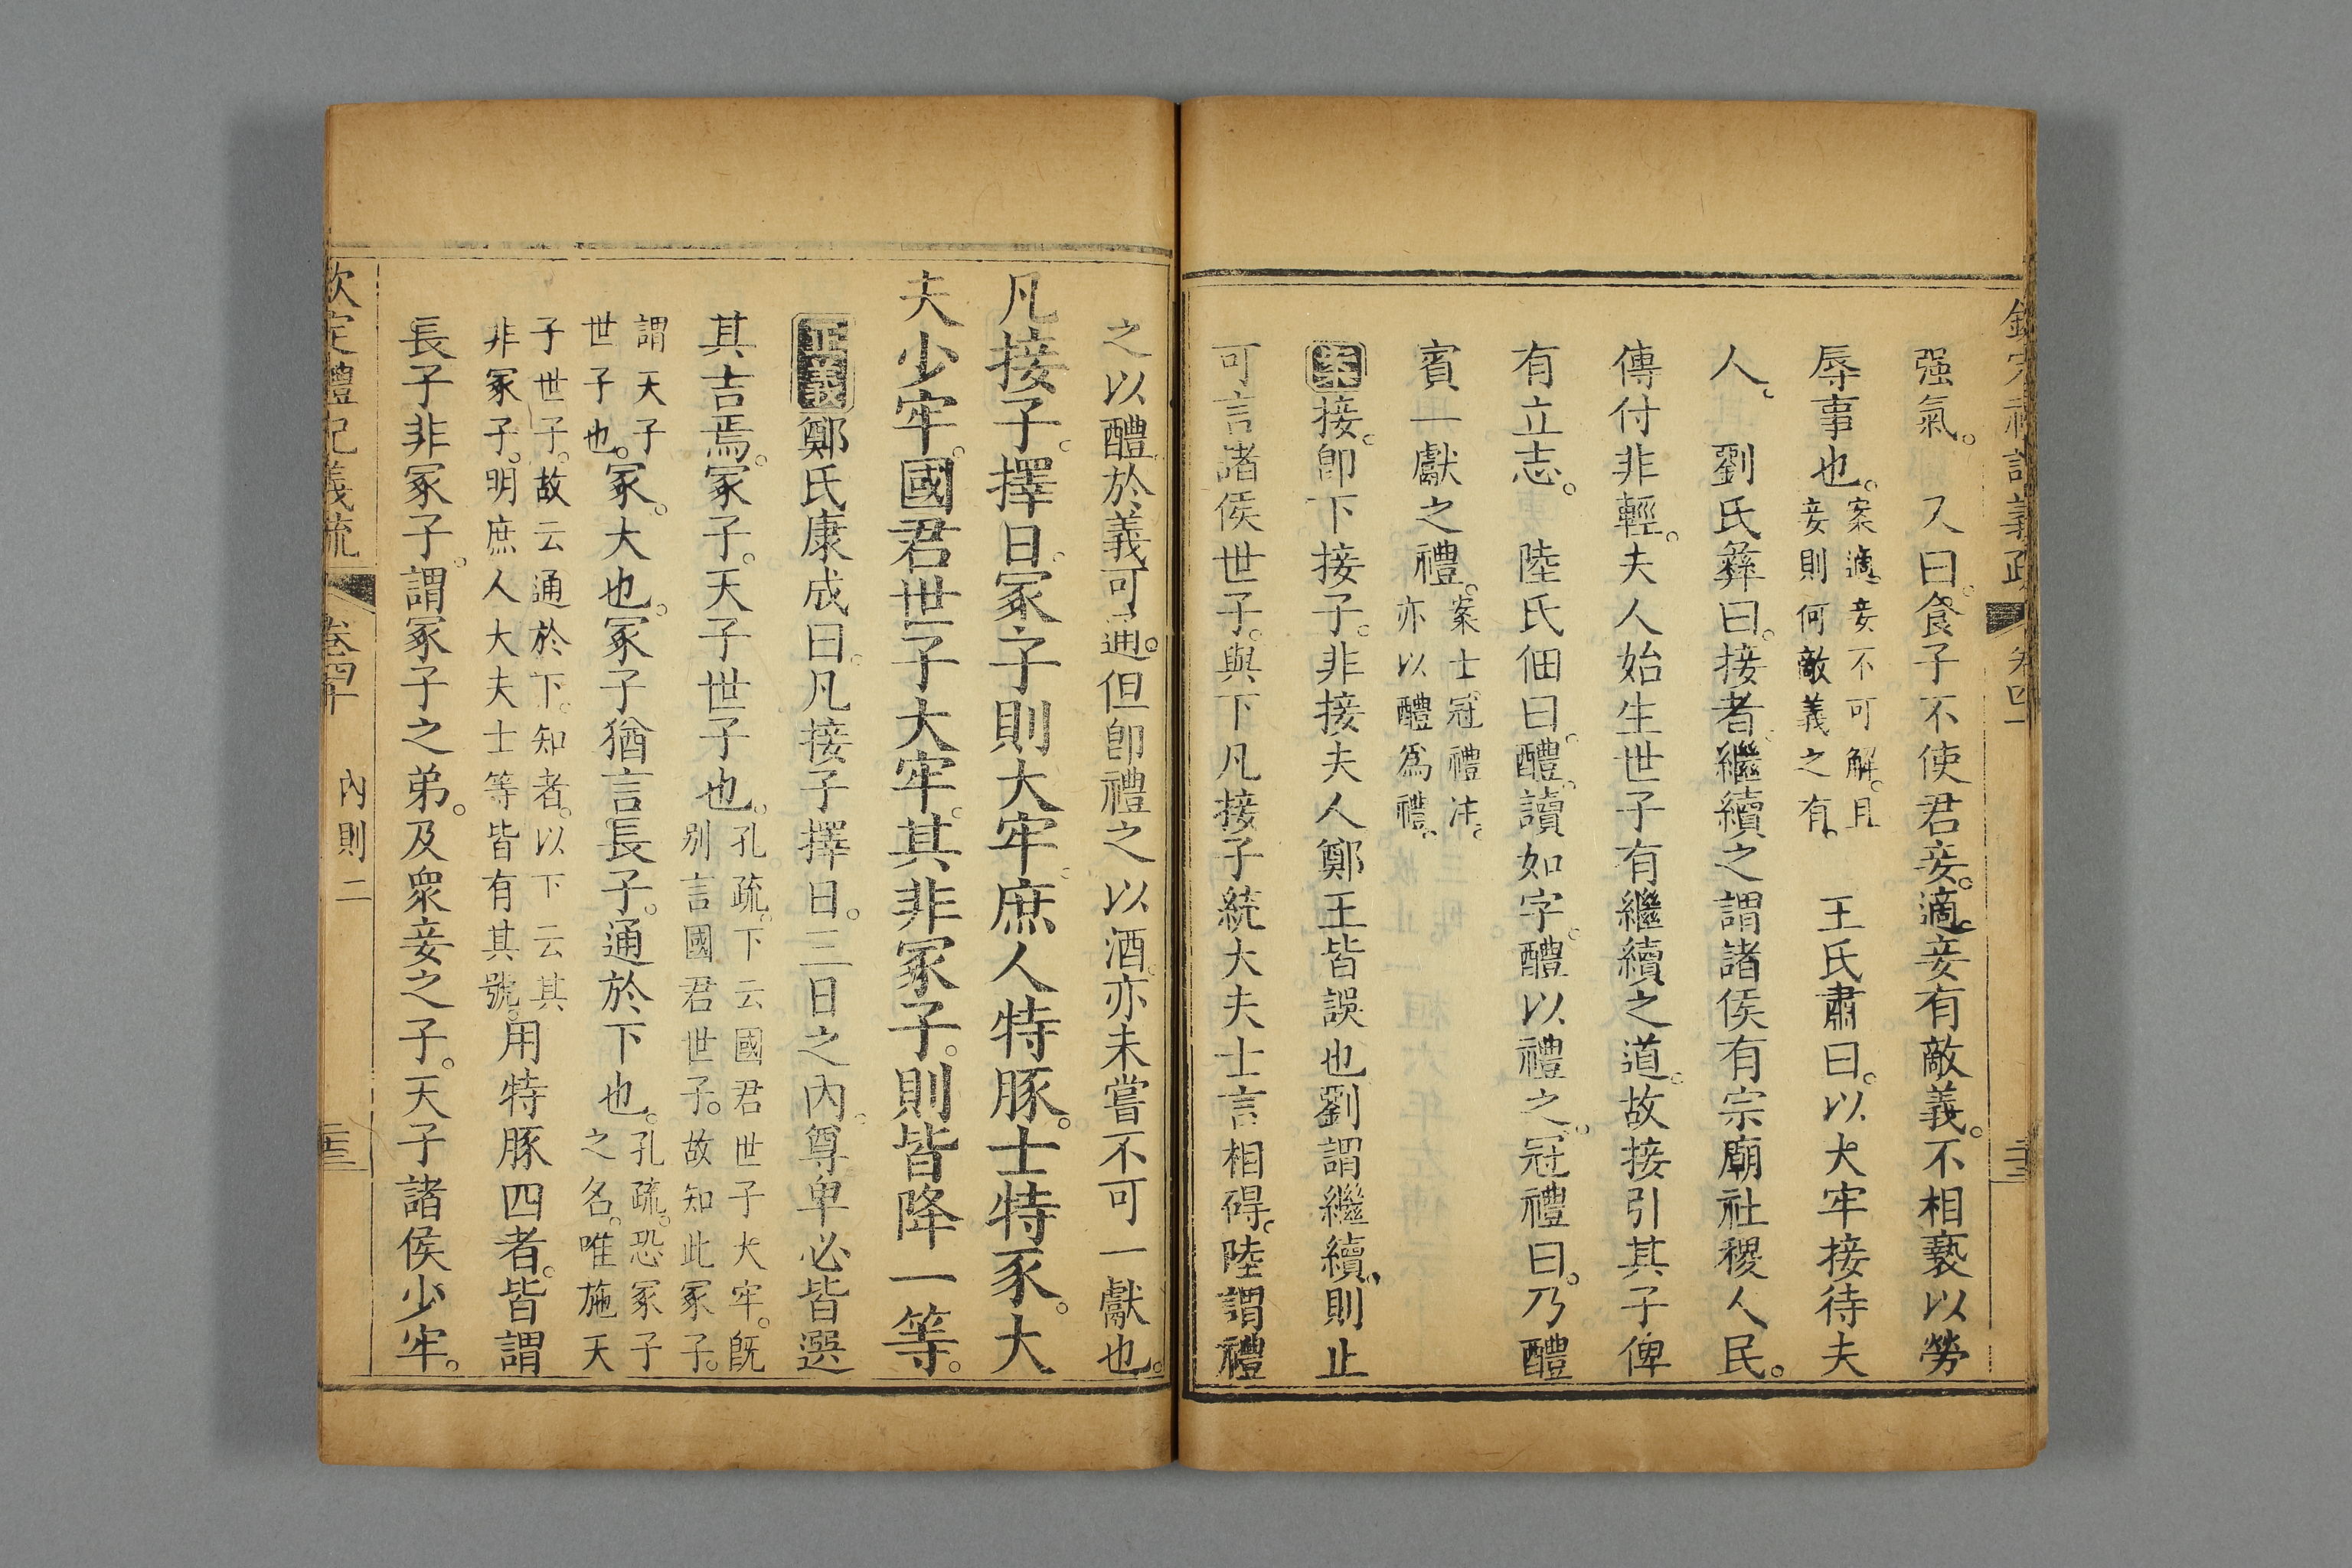 强氣。又曰。食子不使君妾。適妾有敵義。不相褻以勞
辱事也。案適妾不可解。且妾則何敵義之有。王氏肅曰。以大牢接待夫
人。劉氏彝曰。接者。繼續之謂諸侯有宗廟社稷人民。
傳付非輕。夫人始生世子有繼續之道。故接引其子俾
有立志。陸氏佃曰。醴。讀如字。醴以禮之。冠禮曰。乃醴
賓一獻之禮。案士冠禮注。亦以醴爲禮。
案接。卽下接子。非接夫人鄭王皆誤也劉謂繼續。則止
可言諸侯世子。與下凡接子統大夫士言相碍。陸謂禮
之以醴於義可通。但卽禮之以酒。亦未嘗不可一獻也。
凡接子。擇日。冢子則大牢。庶人特豚。士特豕。大
夫少牢。國君世子大牢。其非冢子。則皆降一等。
正義鄭氏康成曰。凡接子擇日。三日之內。尊卑必皆選
其吉焉。冢子。天子世子也。孔疏。下云國君世子大牢。旣別言國君世子。故知此冢子。
謂天子世子也。冢。大也。冢子猶言長子。通於下也。孔疏。恐冢子之名。唯施天
子世子。故云通於下。知者。以下云其非冢子。明庶人大夫士等皆有其號。用特豚四者。皆謂
長子非冢子。謂冢子之弟。及衆妾之子。天子諸侯少牢。
欽定禮記義疏 卷四十 內則二 三十三